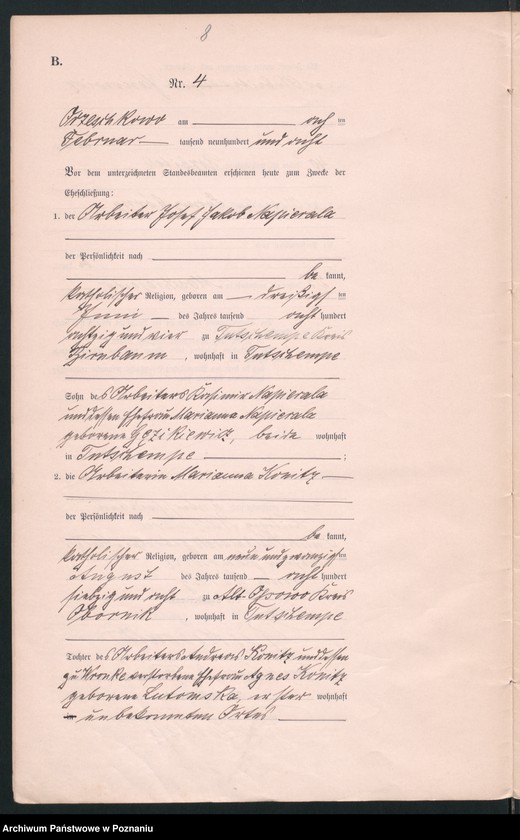 8
B.
Nr. 4
Orzeschkowo am acht ten
Februar tausend neunhundert und acht
Vor dem unterzeichneten Standesbeamten erschienen heute zum Zwecke der
Eheschließung:
1. der Arbeiter Josef Jakob Napierala
der Persönlichkeit nach
be kannt,
katholischer Religion, geboren am dreißigs ten
Juni des Jahres tausend acht hundert
achtzig und vier zu Tutschempe Kreis
Birnbaum, wohnhaft in Tutschempe
Sohn des Arbeiters Kasimir Napierala
und dessen Ehefrau Marianna Napierala
geborene, beide wohnhaft
in Tutschempe;
2. die Arbeiterin Marianna Konitz
der Persönlichkeit nach
be kannt,
katholischer Religion, geboren am neun und zwanzigs ten
August des Jahres tausend acht hundert
siebzig und acht zu Alt Kreis
Obornik, wohnhaft in Tutschempe
Tochter des Arbeiters Andreas Konitz und dessen
zu Wronke verstorbene Ehefrau Agnes Konitz
geborene Lutomska, erster wohnhaft
in unbekannten Ortes
Archiwum Państwowe w Poznaniu
szukajwarchiwach.gov.pl